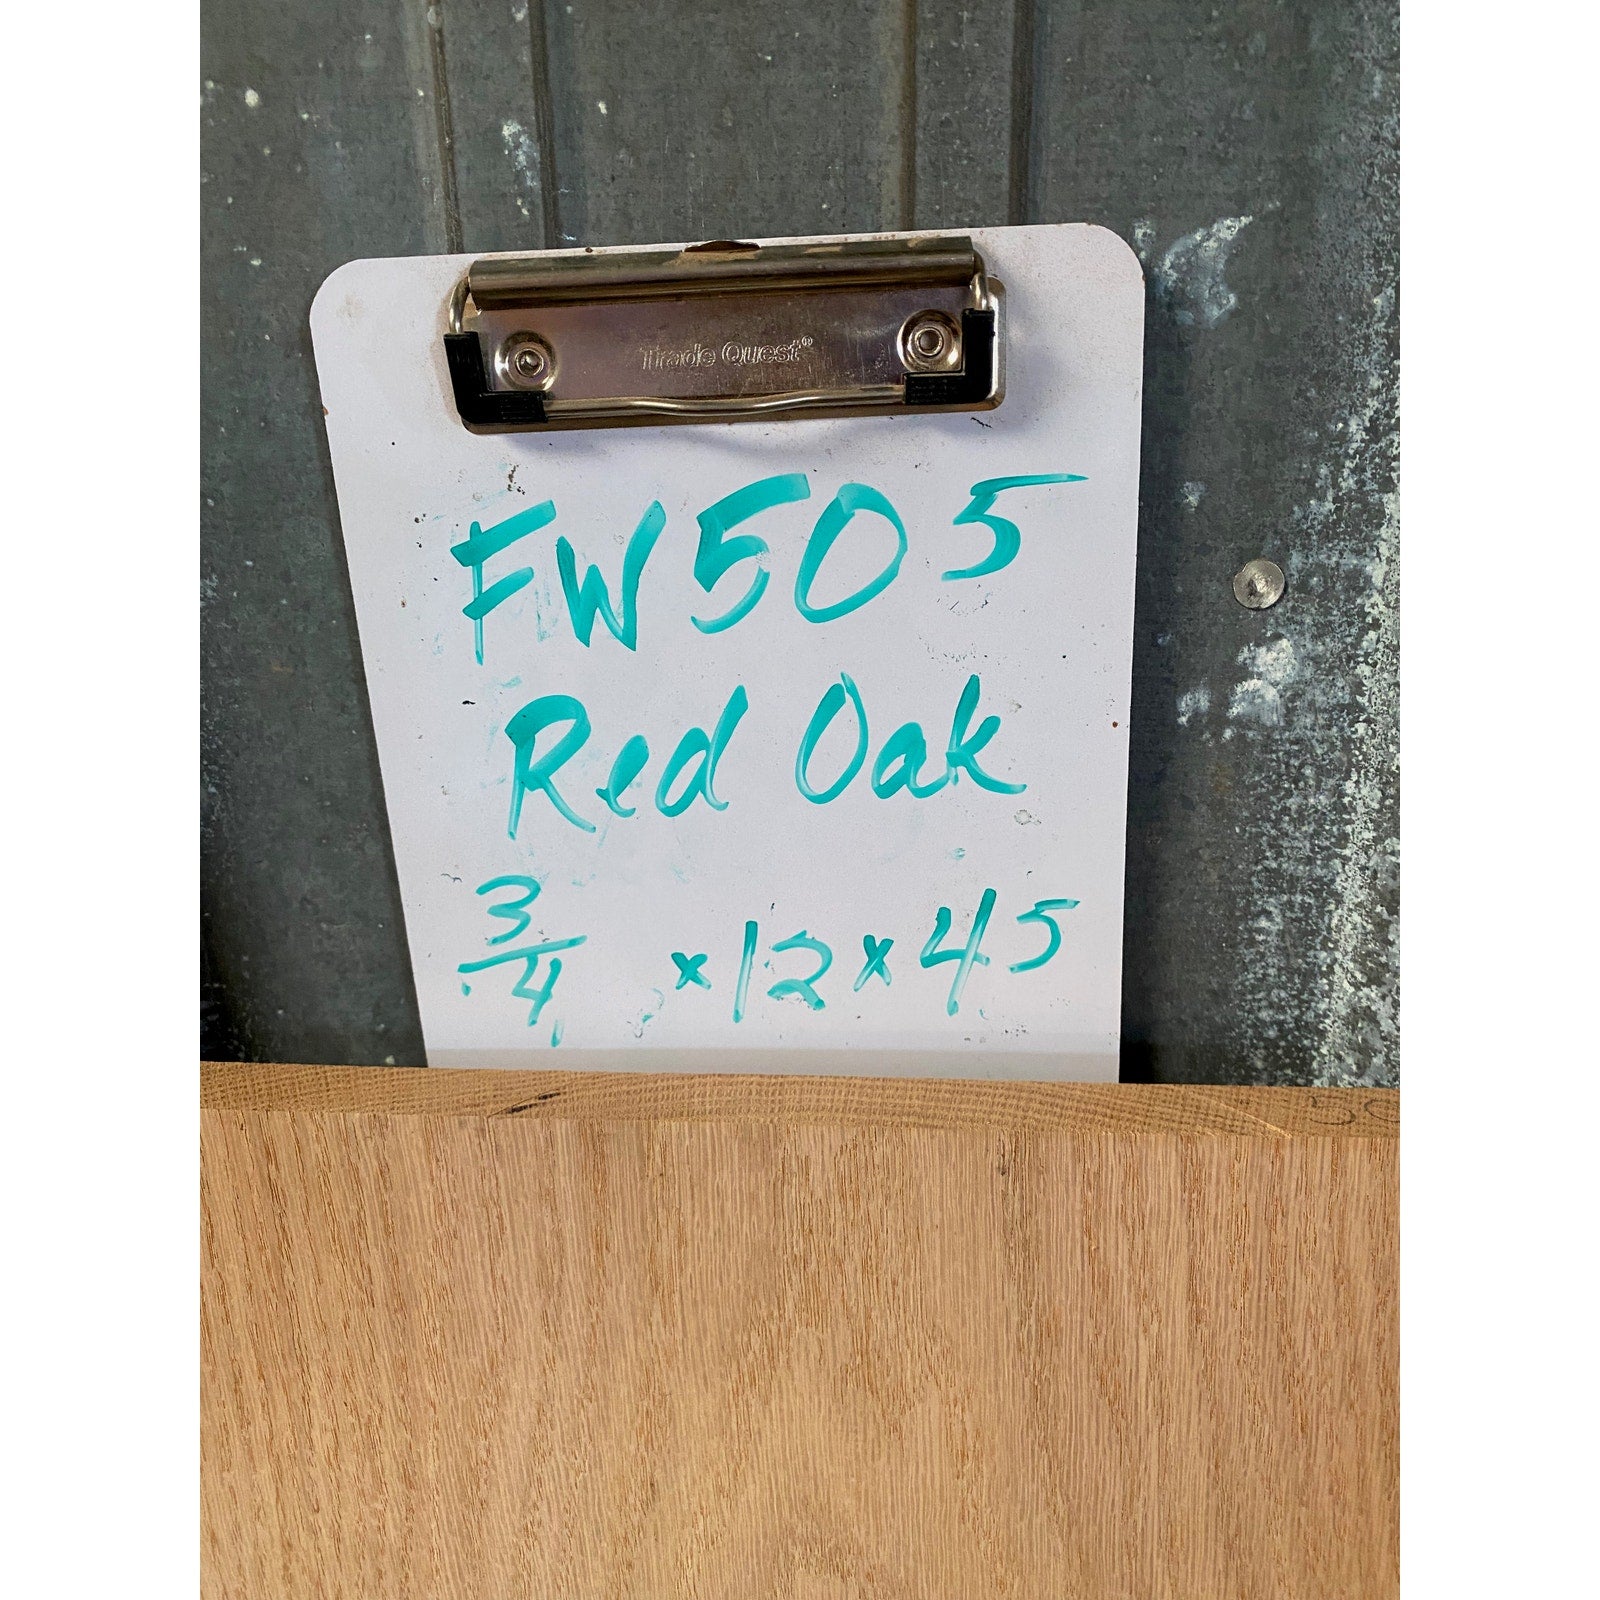 Trade Quest®
FW505
Red Oak
3/4 x 12 x 45